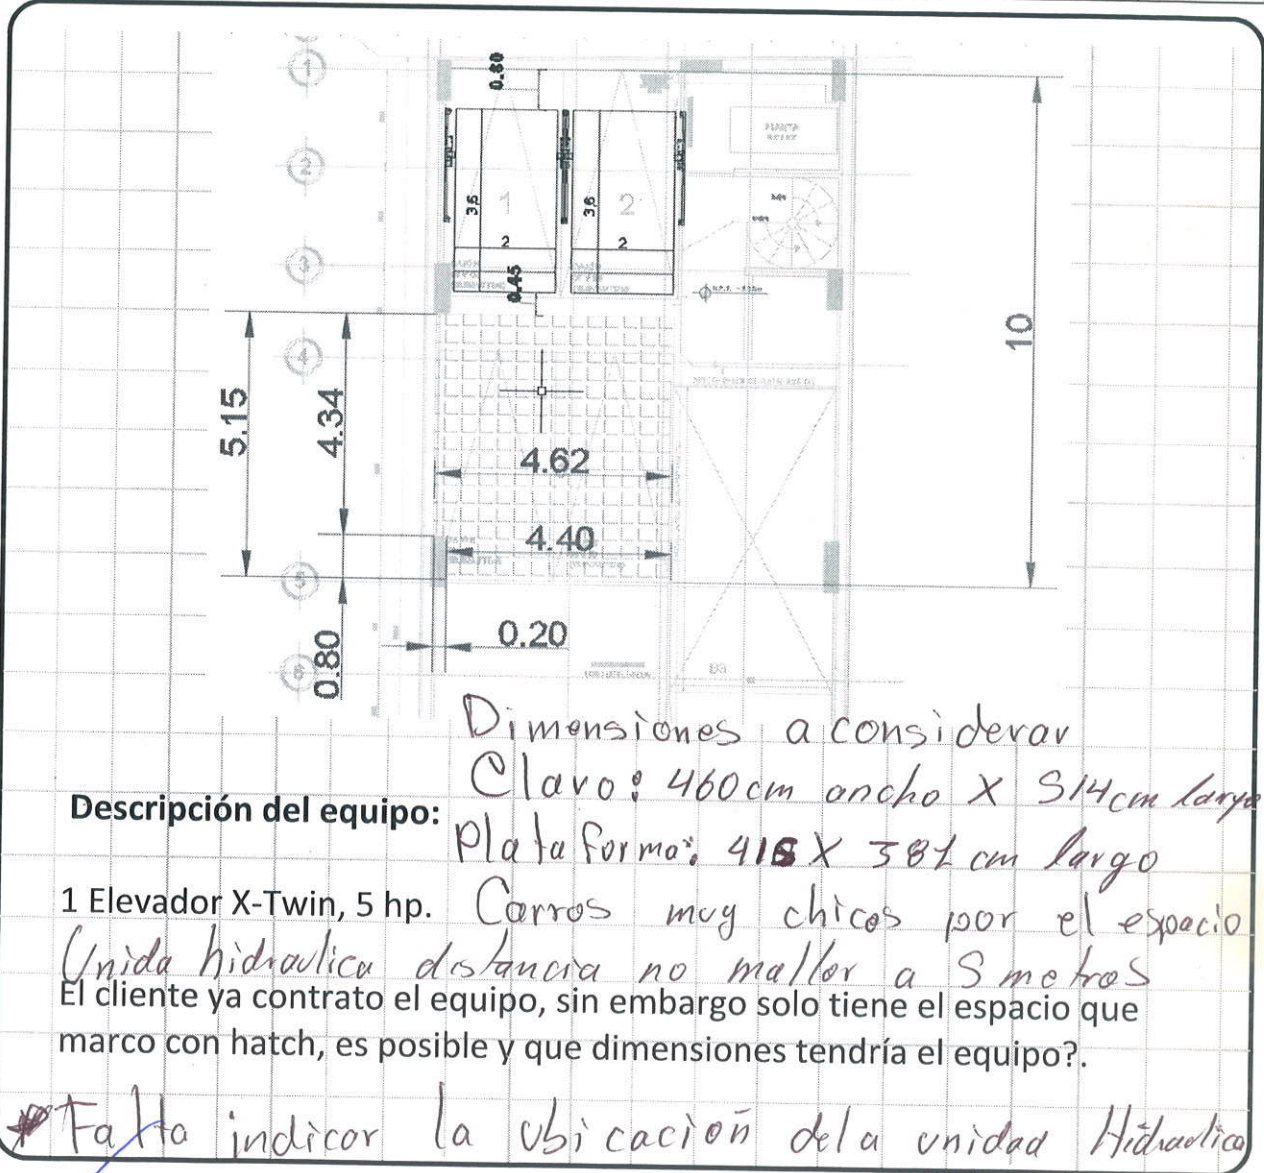 1
0.80
2
3.6
1
2
3.6
2
2
3
0.45
4
10
5.15
4.34
4.62
4.40
5
0.80
0.20
6
Dimensiones a considerar
Claro: 460cm ancho X 514cm largo
Descripción del equipo:
Plataforma: 415 X 381 cm largo
1 Elevador X-Twin, 5 hp. Carros muy chicos por el espacio
Unida hidraulica distancia no mallor a 5 metros
El cliente ya contrato el equipo, sin embargo solo tiene el espacio que
marco con hatch, es posible y que dimensiones tendría el equipo?.
* Falta indicar la ubicación dela unidad Hidraulica